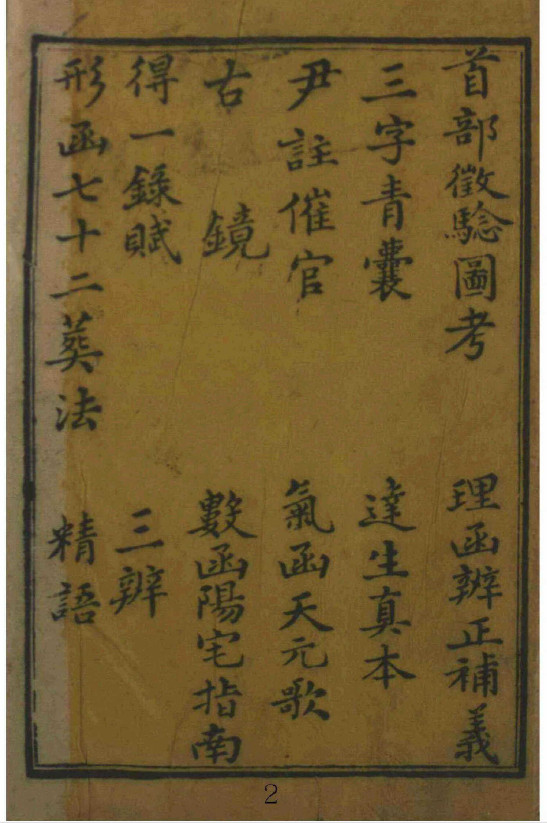 首部徵驗圖考 理函辨正補義
三字青囊 達生真本
尹註催官 氣函天元歌
古鏡 數函陽宅指南
得一錄賦 三辨
形函七十二葬法 精語
2